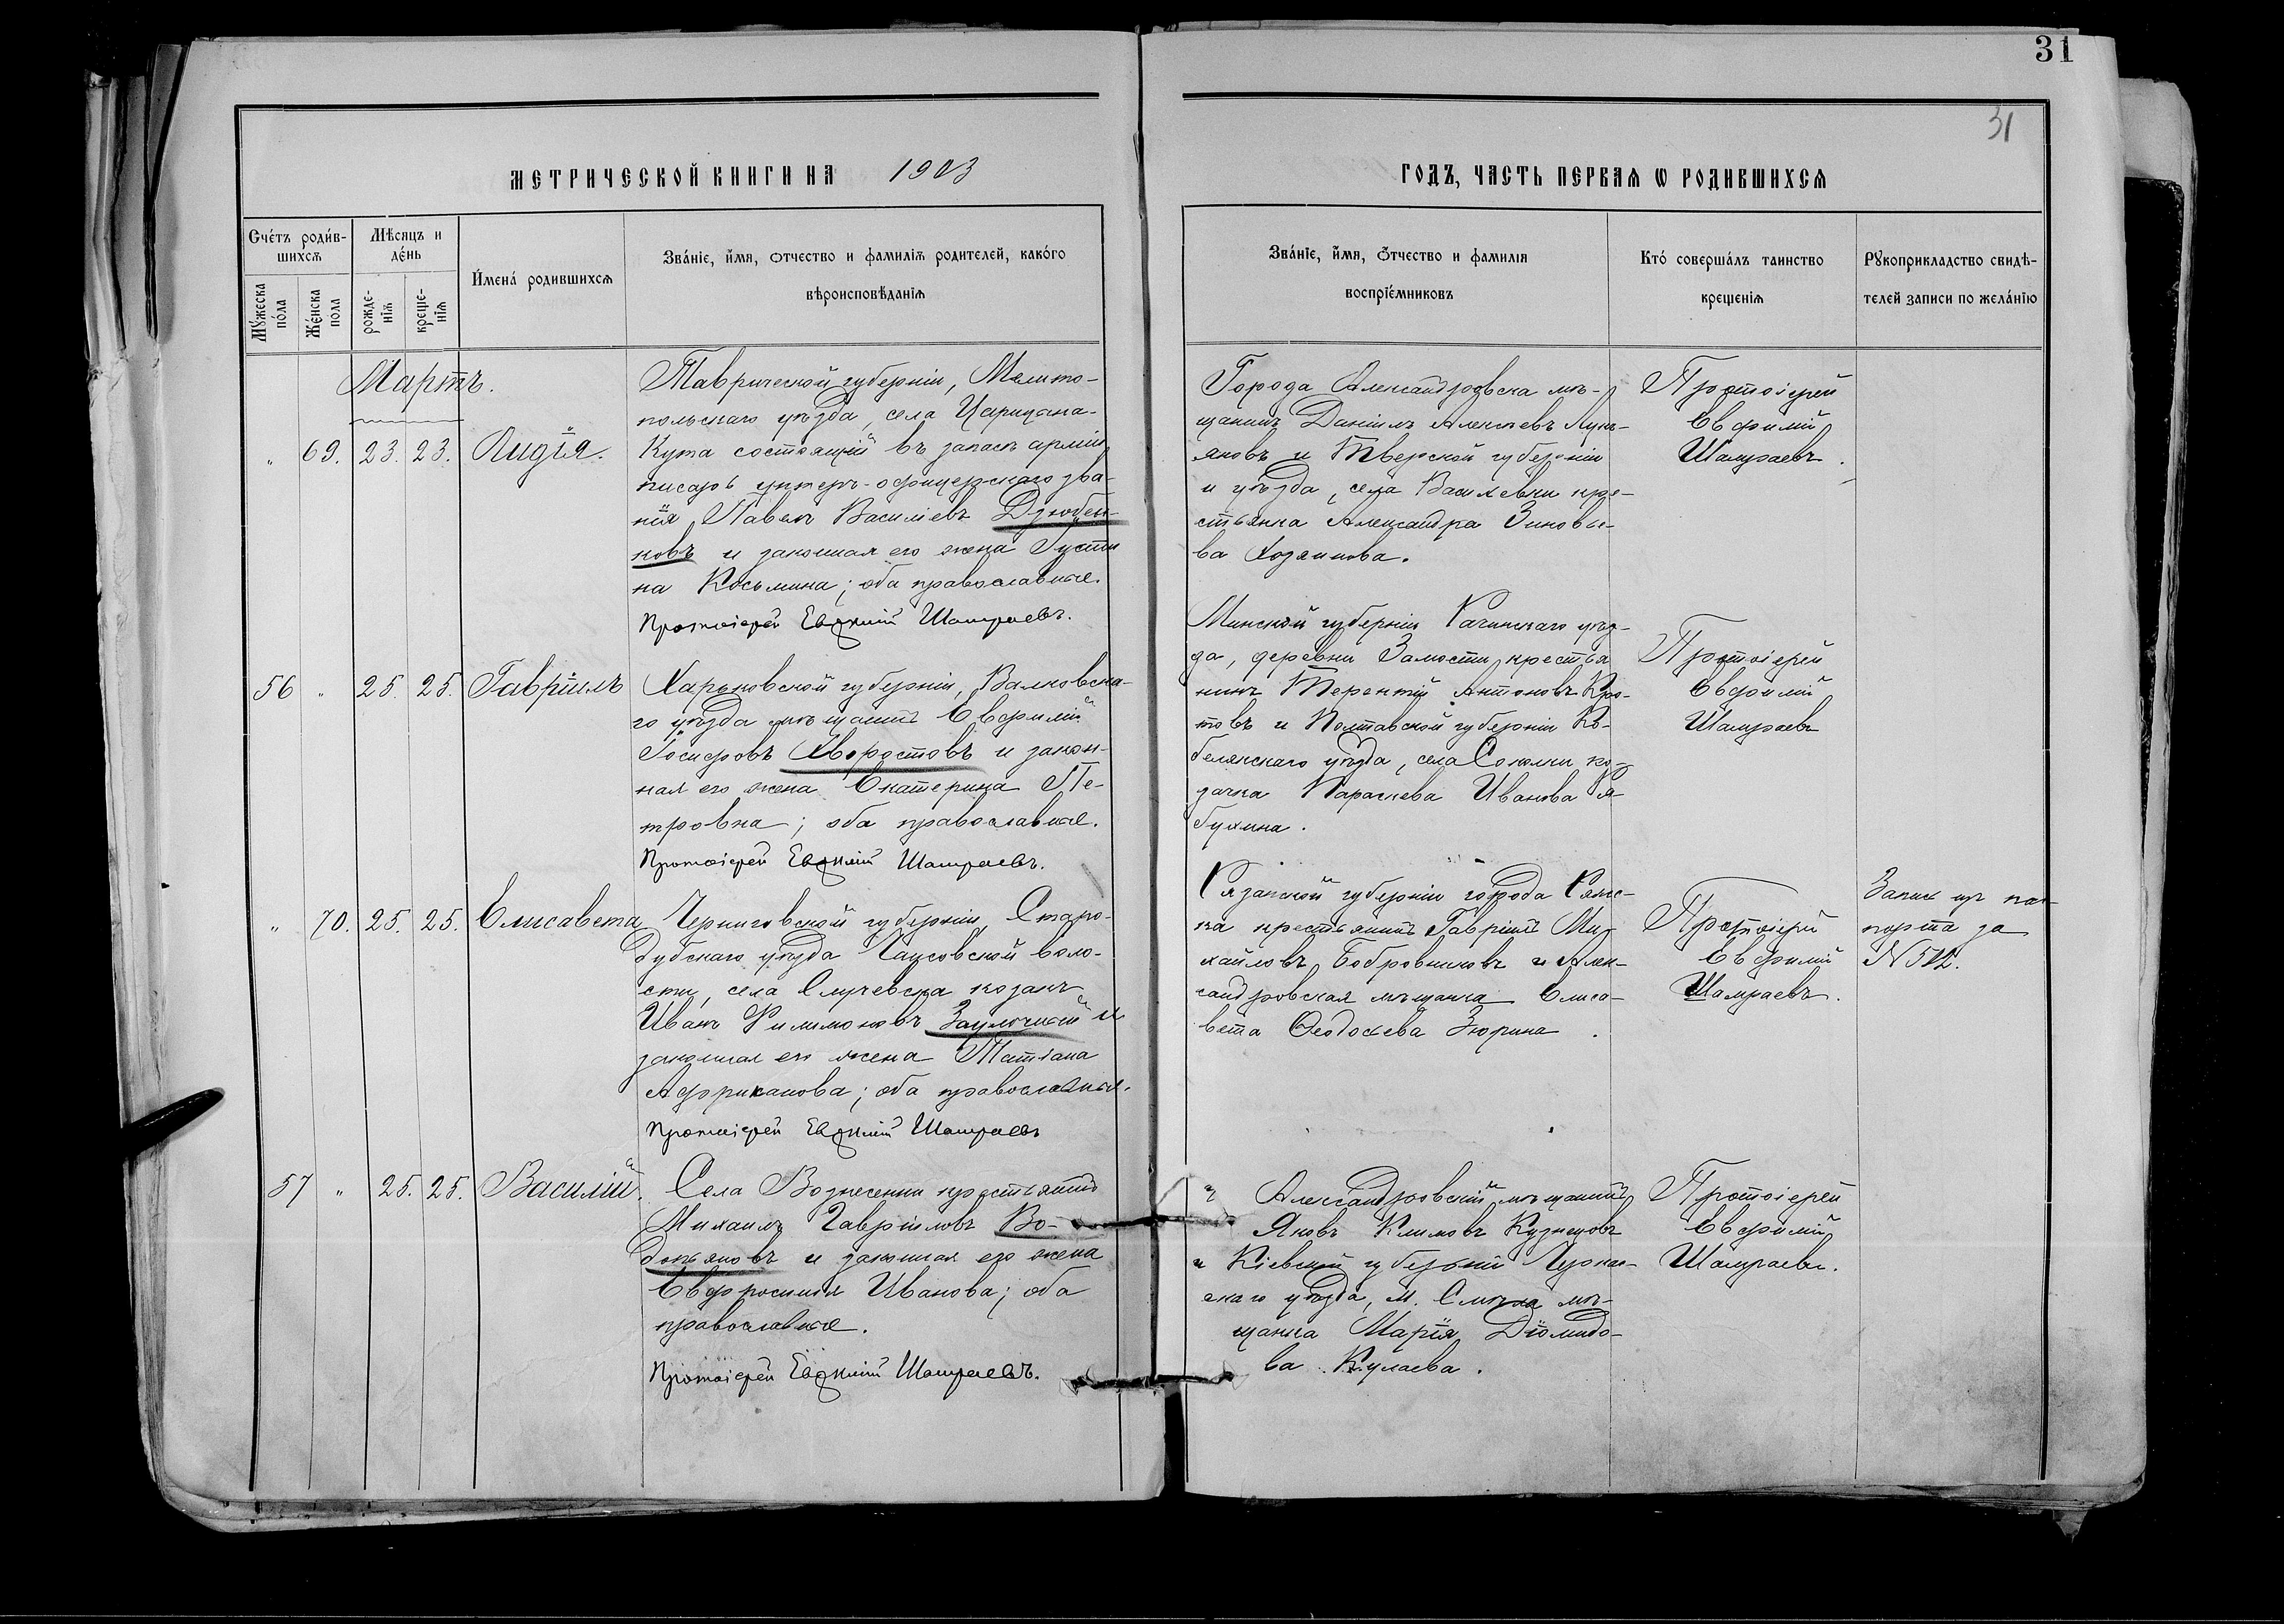 31
31
МЕТРИЧЕСКОЙ КНИГИ НА 1903
ГОДЪ, ЧАСТЬ ПЕРВАѦ Ѡ РОДИВШИХСѦ
Счетъ родив-
шихсѧ
Мѣсяцъ и
день
Имена родившихсѧ
Званіе, имя, отчество и фамиліѧ родителей, какого
вѣроисповѣданіѧ
Мужеска
пола
Женска
пола
рожде-
ніѧ
креще-
ніѧ
Званіе, имя, отчество и фамилія
воспріемниковъ
Кто совершалъ таинство
крещеніѧ
Рукоприкладство свидѣ-
телей записи по желанію
Мартъ.
" 69. 23. 23. Лидія.
Таврической губерніи, Мелито-
польскаго уѣзда, села Царицына-
Кута состоящій въ запасѣ арміи
писарь унтеръ-офицерскаго зва-
нія Павелъ Василіевъ Дзюбен-
ковъ и законная его жена Густи
на Косьмина; оба православные.
Протоіерей Евѳимій Шамраевъ.
Города Александровска мѣ-
щанинъ Даніилъ Алексѣевъ Лукь-
яновъ и Тверской губерніи
и уѣзда, села Василевки кре-
стьянка Александра Зиновье-
ва Хозяинова.
Протоіерей
Евфимій
Шамраевъ.
56 " 25. 25. Гавріилъ
Харьковской губерніи, Валковска-
го уѣзда мѣщанинъ Евфимій
Іосифовъ Хворостовъ и закон-
ная его жена Екатерина Пе-
тровна; оба православные.
Протоіерей Евѳимій Шамраевъ.
Минской губерніи Рѣчинскаго уѣз-
да, деревни Замости крестья
нинъ Терентій Антоновъ Кро-
товъ и Полтавской губерніи Ко-
белякскаго уѣзда, села Соколки ко-
зачка Параскева Иванова Ря-
бухина.
Протоіерей
Евфимій
Шамраевъ
" 70. 25. 25. Елисавета
Черниговской губерніи, Старо-
дубскаго уѣзда воло-
сти, села козакъ
Иванъ Филимоновъ и
законная его жена Татіана
Африканова; оба православные.
Протоіерей Евѳимій Шамраевъ
Рязанской губерніи города Ряжс-
ка крестьянинъ Гавріилъ Ми-
хайловъ Бобровниковъ и Алек-
сандровская мѣщанка Елиса-
вета Ѳеодосіева Зюрина.
Протоіерей
Евфимій
Шамраевъ.
порта за
57 " 25. 25. Василій.
Села Вознесенки крестьянинъ
Михаилъ Гавріиловъ Во-
допьяновъ и законная его жена
Евфросинія Иванова; оба
православные.
Протоіерей Евѳимій Шамраевъ.
Александровскій мѣщанинъ
Яковъ Климовъ Кузнецовъ
и Кіевской губерніи Черкас-
скаго уѣзда, м. Смѣла мѣ-
щанка Марія Діомидо-
ва Кулаева.
Протоіерей
Евфимій
Шамраевъ.